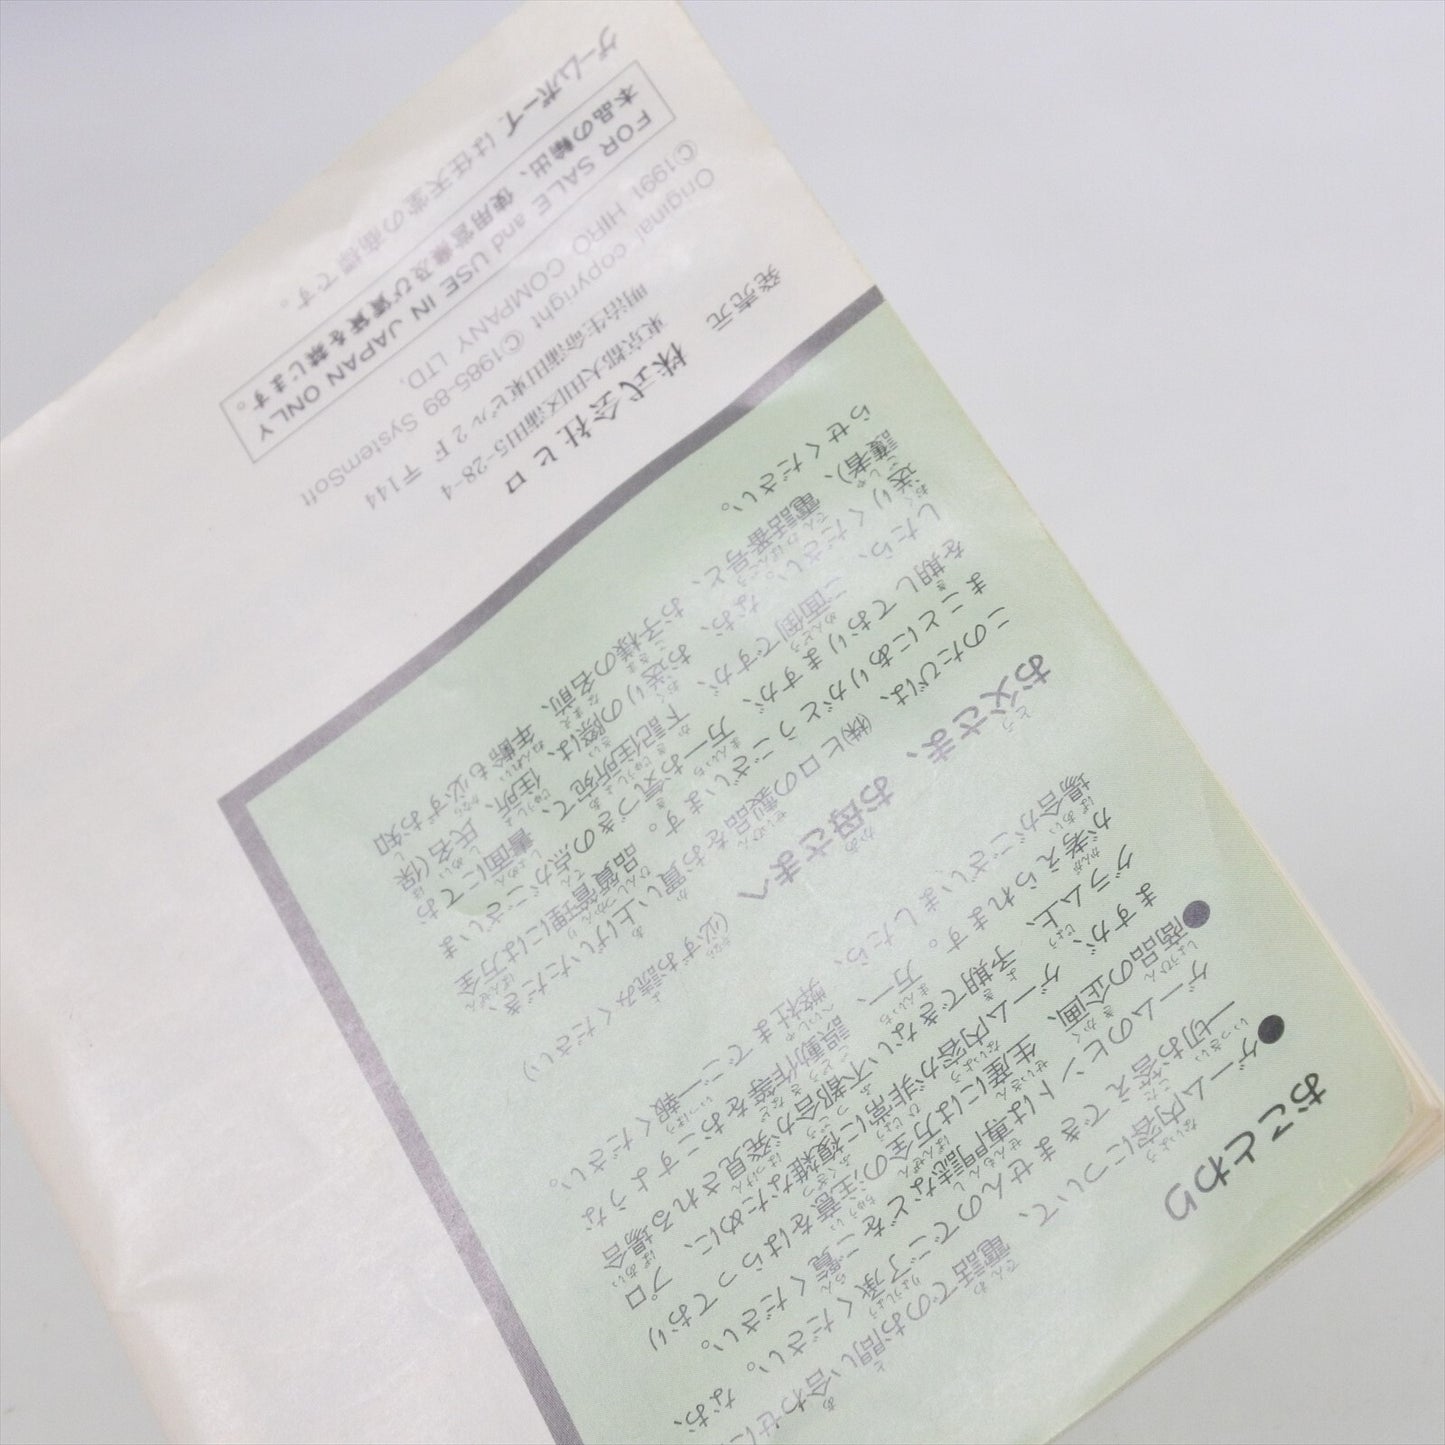 おことわり
●ゲーム内容について、電話でのお問い合わせに
一切お答えできませんのでご了承ください。なお、
ゲームのヒントは専門誌などをご覧ください。
●商品の企画、生産には万全の注意をはらっており
ますが、ゲーム内容が非常に複雑なために、プロ
グラム上、予期できない不都合が発見される場合
が考えられます。万一、誤動作等をおこすような
場合がございましたら、弊社までご一報ください。
お父さま、お母さまへ(必ずお読みください)
このたびは、㈱ヒロの製品をお買い上げいただき、
まことにありがとうございます。品質管理には万全
を期しておりますが、万一お気づきの点がございま
したら、ご面倒ですが、下記住所宛て、書面にてお
送りください。なお、お送りの際は、住所、氏名(保
護者)、電話番号と、お子様の名前、年齢も必ずお知
らせください。
発売元
株式会社ヒロ
東京都大田区蒲田5-28-4
明治生命蒲田東ビル2F 〒144
Original copyright ©1985-89 SystemSoft
©1991 HIRO COMPANY LTD.
FOR SALE and USE IN JAPAN ONLY
本品の輸出、使用営業及び賃貸を禁じます。
ゲームボーイは任天堂の商標です。